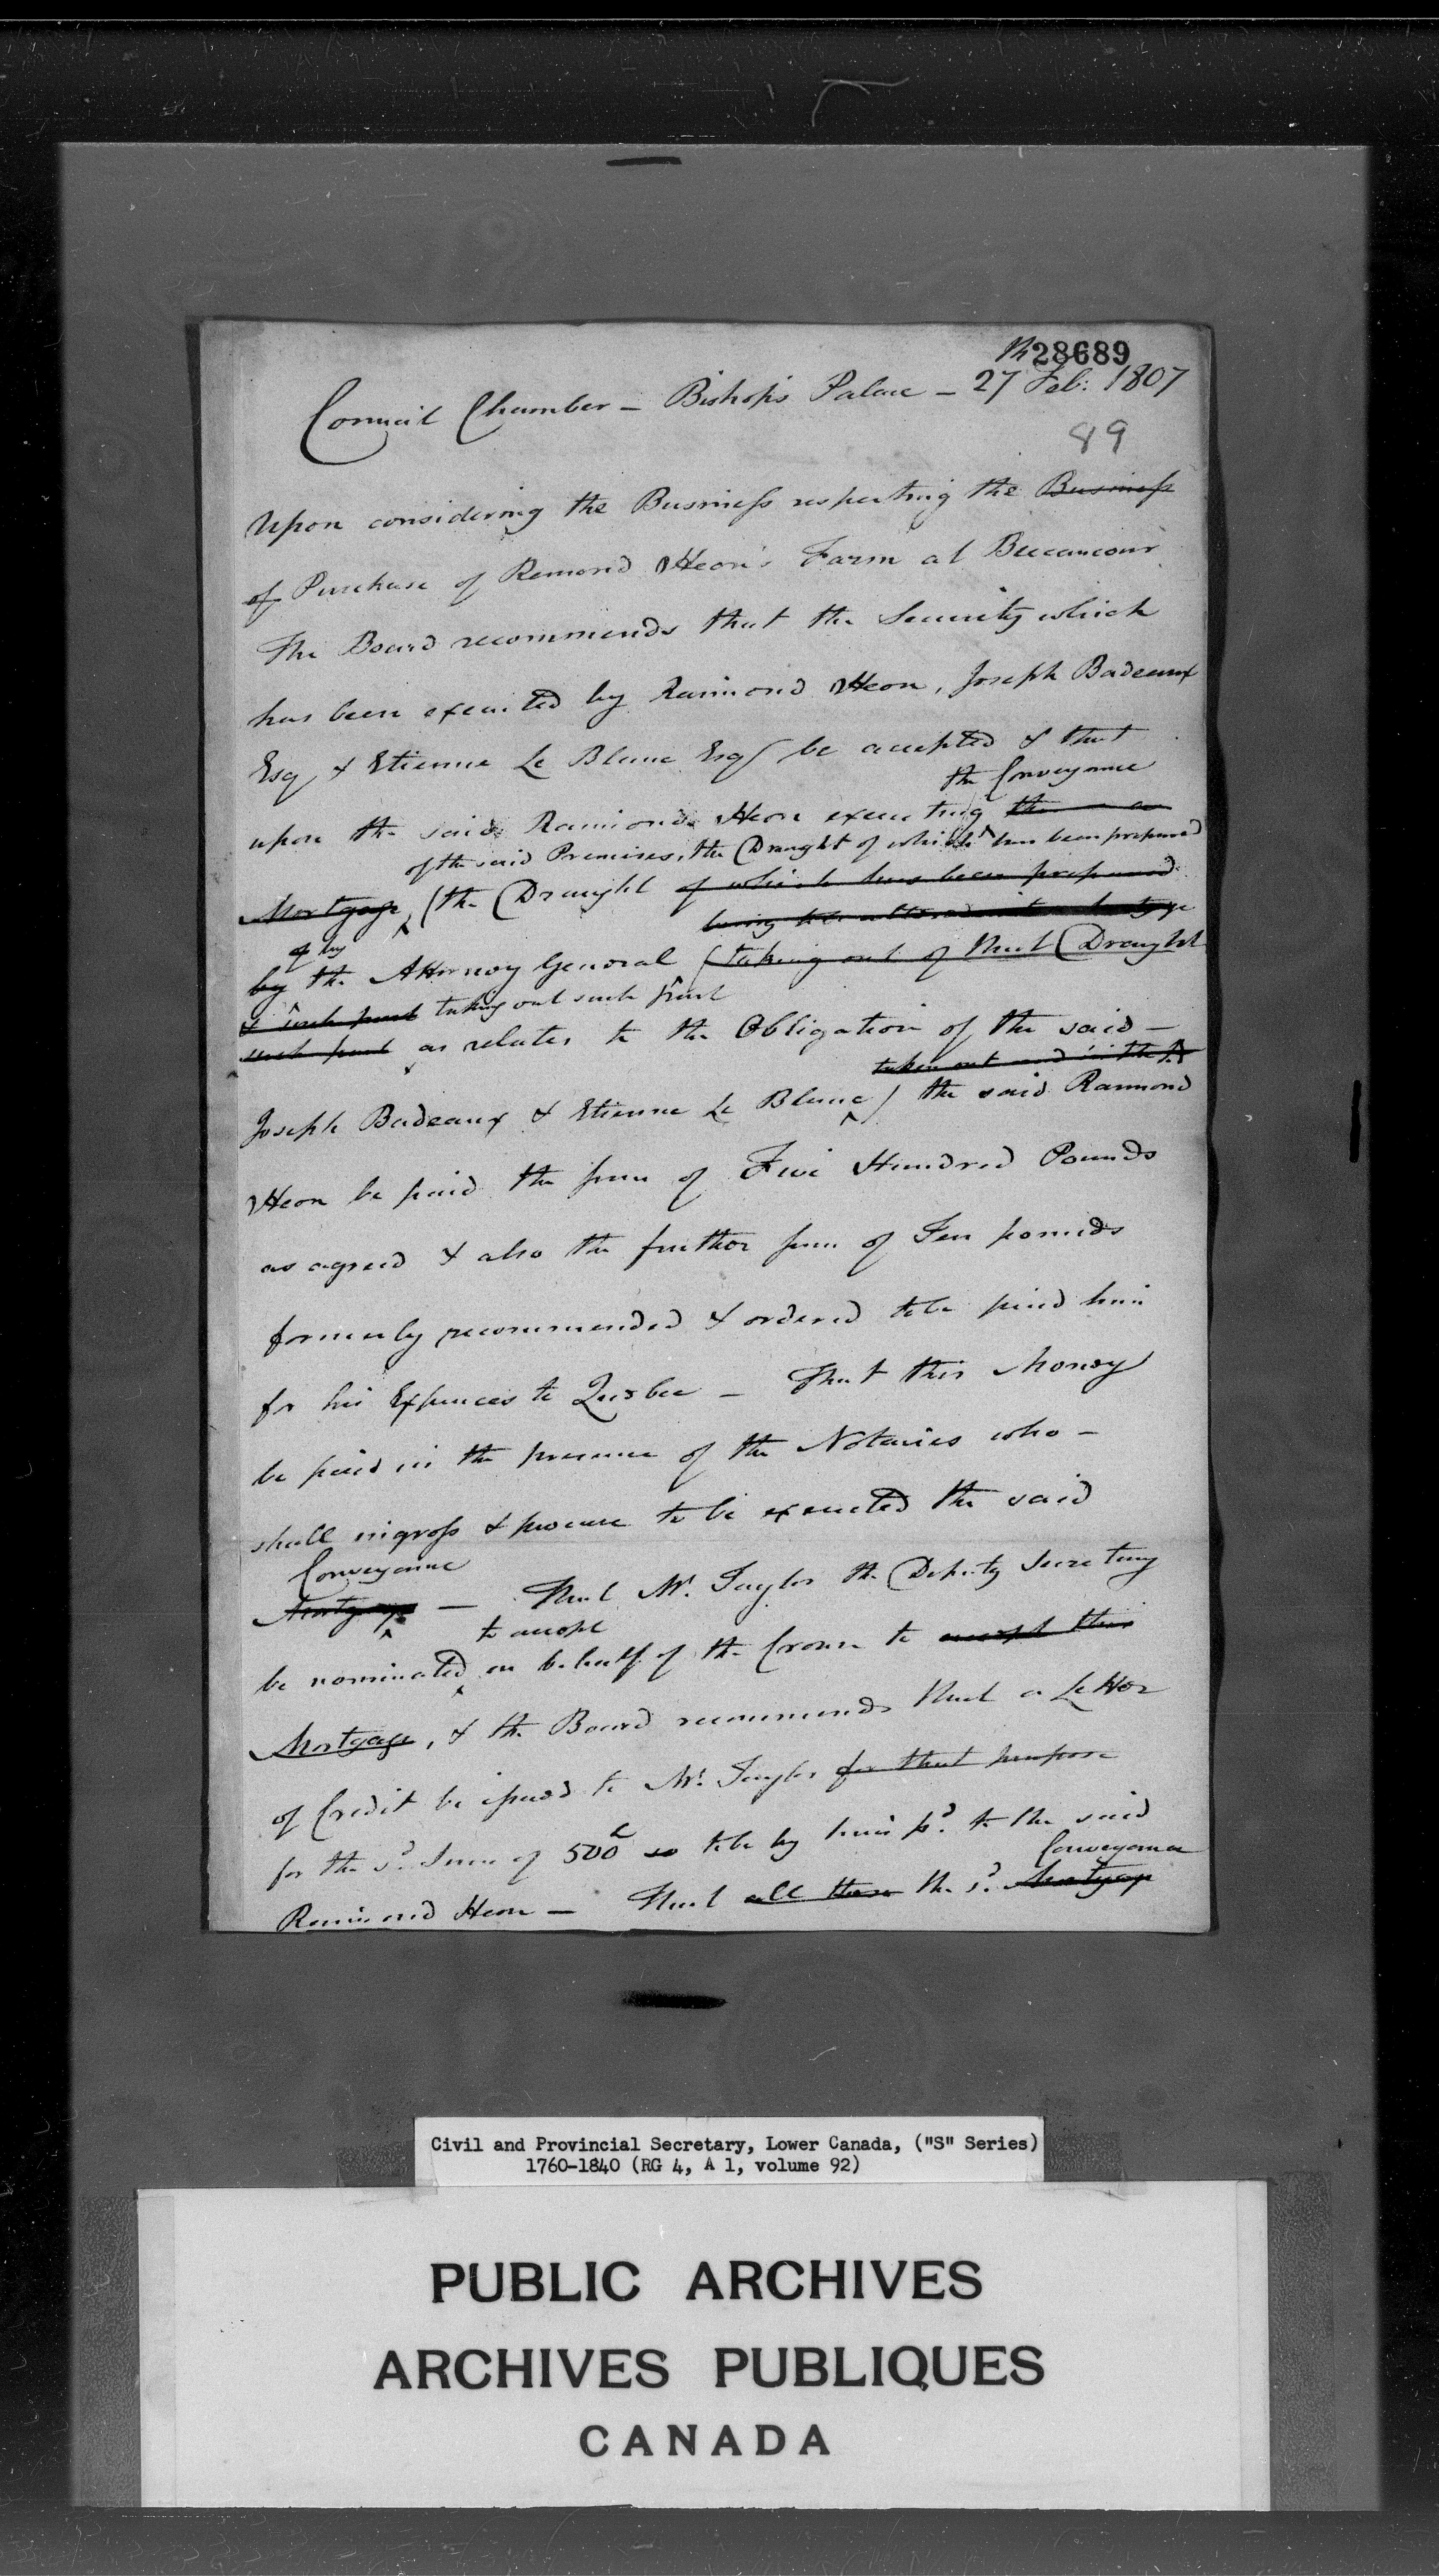 28689
Council Chamber – Bishop's Palace – 27 Feb: 1807
89
Upon considering the Business respecting the Business
of Purchase of Remond Heon's Farm at Beccancour
The Board recommends that the Security which
has been executed by Raimond Heon, Joseph Badeaux
Esq & Etienne Le Blanc Esq be accepted & that
the Conveyance
upon the said Raimond Heon executing the
of the said Premises, the Draught of which has been prepared
Mortgage, (the Draught of which has been prepared
being
of by
by the Attorney General (taking out of that Draught
& such part taking out such part
such part as relates to the Obligation of the said –
taken out and
Joseph Badeaux & Etienne Le Blanc) the said Raimond
Heon be paid the sum of Five Hundred Pounds
as agreed & also the further sum of Ten pounds
formerly recommended & ordered to be paid him
for his Expences to Quebec – That this Money
be paid in the presence of the Notaries who –
shall ingross & procure to be executed the said
Conveyance
Mortgage – That Mr. Taylor the Deputy Secretary
to accept
be nominated on behalf of the Crown to accept this
Mortgage, & the Board recommends that a Letter
of Credit be issued to Mr. Taylor for that purpose
for the sd. Sum of 500£ so to be by him pd. to the said
Conveyance
Raimond Heon – That all these the sd. Mortgage
Civil and Provincial Secretary, Lower Canada, ("S" Series)
1760-1840 (RG 4, A 1, volume 92)
PUBLIC ARCHIVES
ARCHIVES PUBLIQUES
CANADA